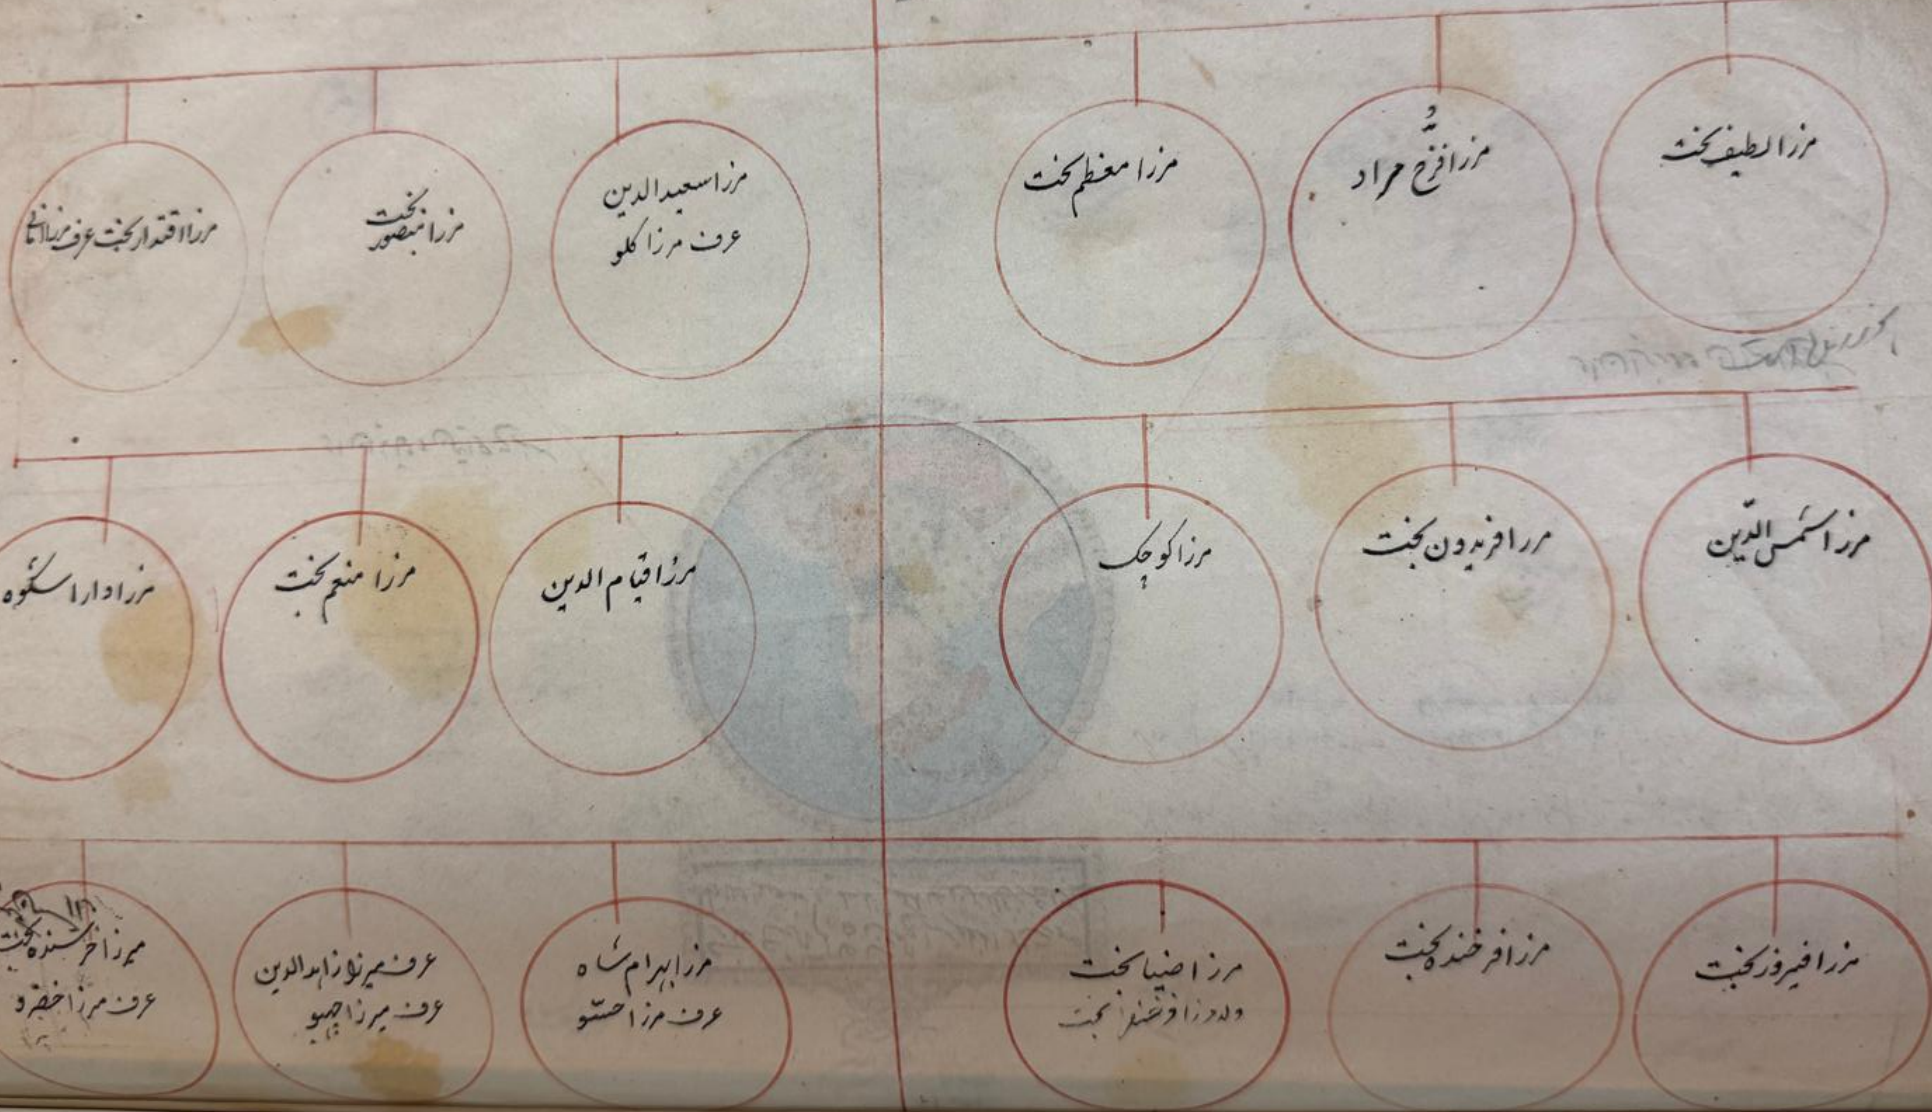 مرزا لطیف بخت
مرزا فرّخ مراد
مرزا معظم بخت
مرزا سعید الدین
عرف مرزا کلو
مرزا منصور بخت
مرزا اقتدار بخت عرف مرزا
مرزا شمس الدّین
مرزا فریدون بخت
مرزا کوچک
مرزا قیام الدین
مرزا منعم بخت
مرزا دارا شکوه
مرزا فیروز بخت
مرزا فرخنده بخت
مرزا ضیا بخت
ولد مرزا بخت
مرزا بہرام شاه
عرف مرزا حسّو
عرف میرزا زاہد الدین
عرف میرزا
میرزا خرسنده بخت
عرف مرزا خضرو